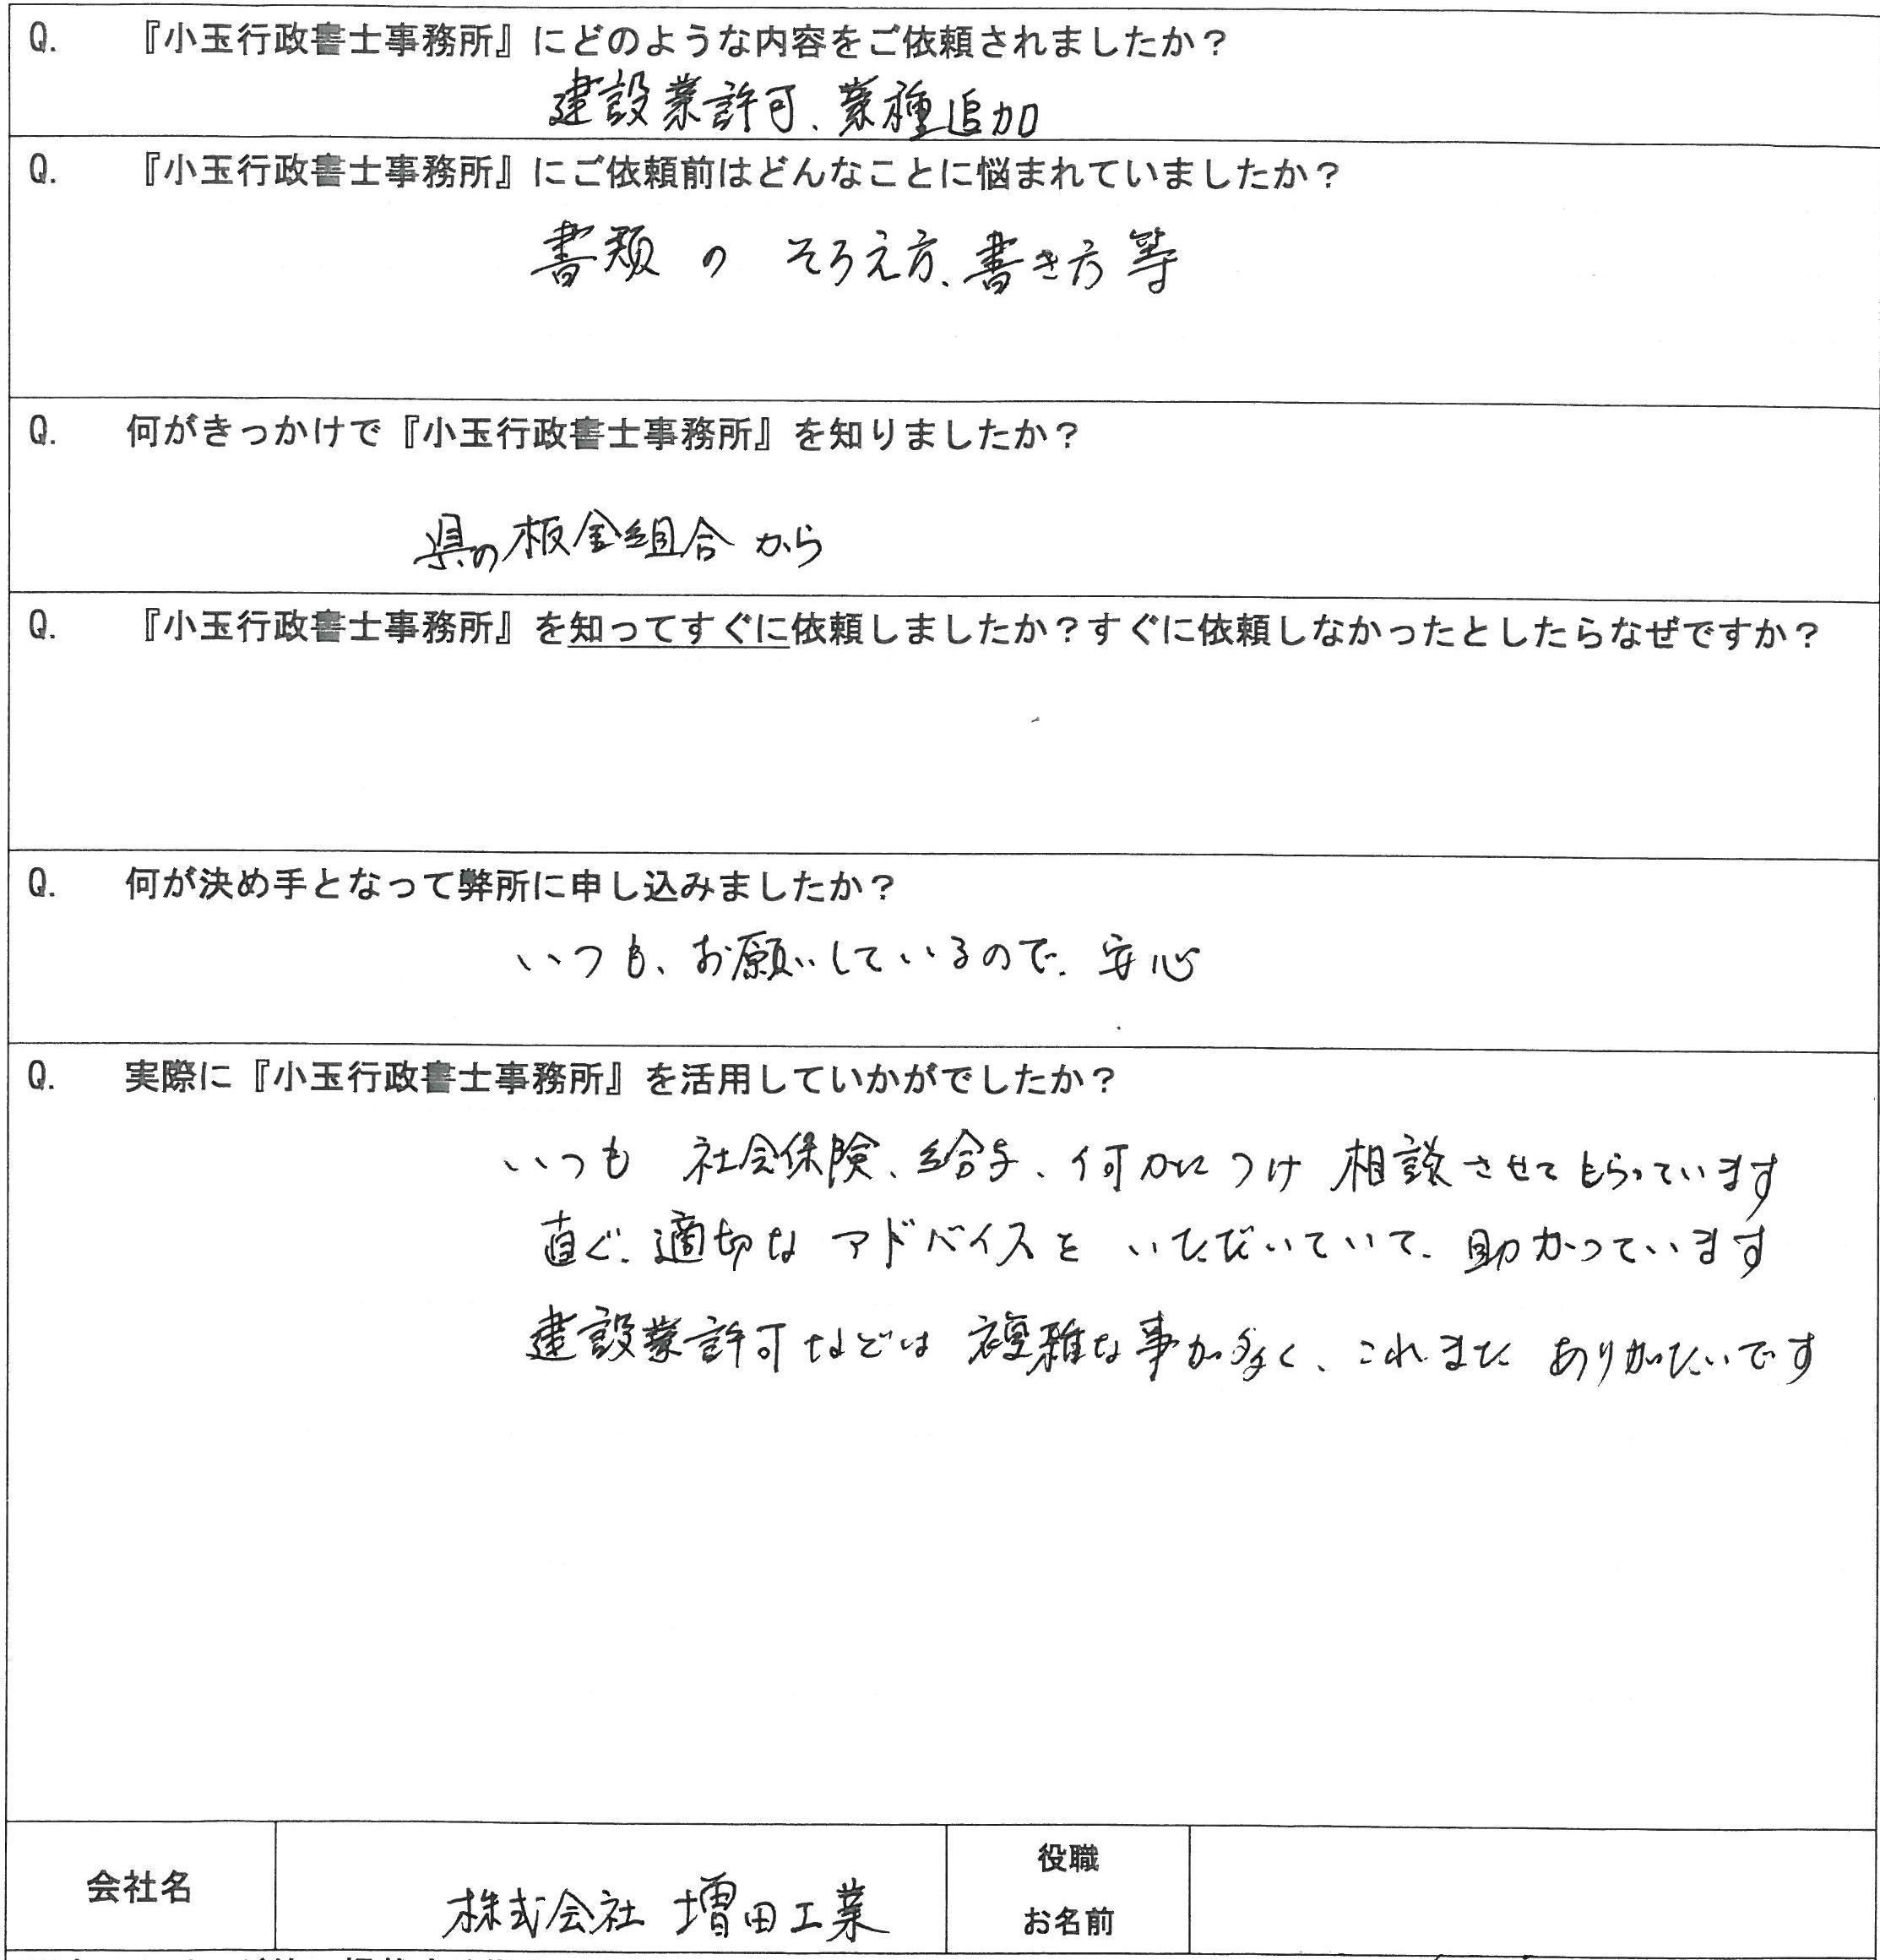 Q. 『小玉行政書士事務所』にどのような内容をご依頼されましたか？
建設業許可、業種追加
Q. 『小玉行政書士事務所』にご依頼前はどんなことに悩まれていましたか？
書類の そろえ方、書き方等
Q. 何がきっかけで『小玉行政書士事務所』を知りましたか？
県の板金組合から
Q. 『小玉行政書士事務所』を知ってすぐに依頼しましたか？すぐに依頼しなかったとしたらなぜですか？
Q. 何が決め手となって弊所に申し込みましたか？
いつも、お願いしているので、安心
Q. 実際に『小玉行政書士事務所』を活用していかがでしたか？
いつも 社会保険、給与、何かにつけ 相談させてもらっています
直ぐ、適切な アドバイスを いただいていて、助かっています
建設業許可などは 複雑な事が多く、これまた ありがたいです
会社名 株式会社 増田工業 役職
お名前